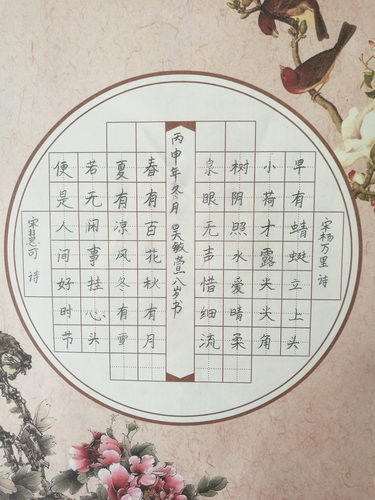 泉眼无声惜细流
树阴照水爱晴柔
小荷才露尖尖角
早有蜻蜓立上头
宋杨万里 诗
春有百花秋有月
夏有凉风冬有雪
若无闲事挂心头
便是人间好时节
宋慧可 诗
丙申年冬月 吴敏萱八岁书